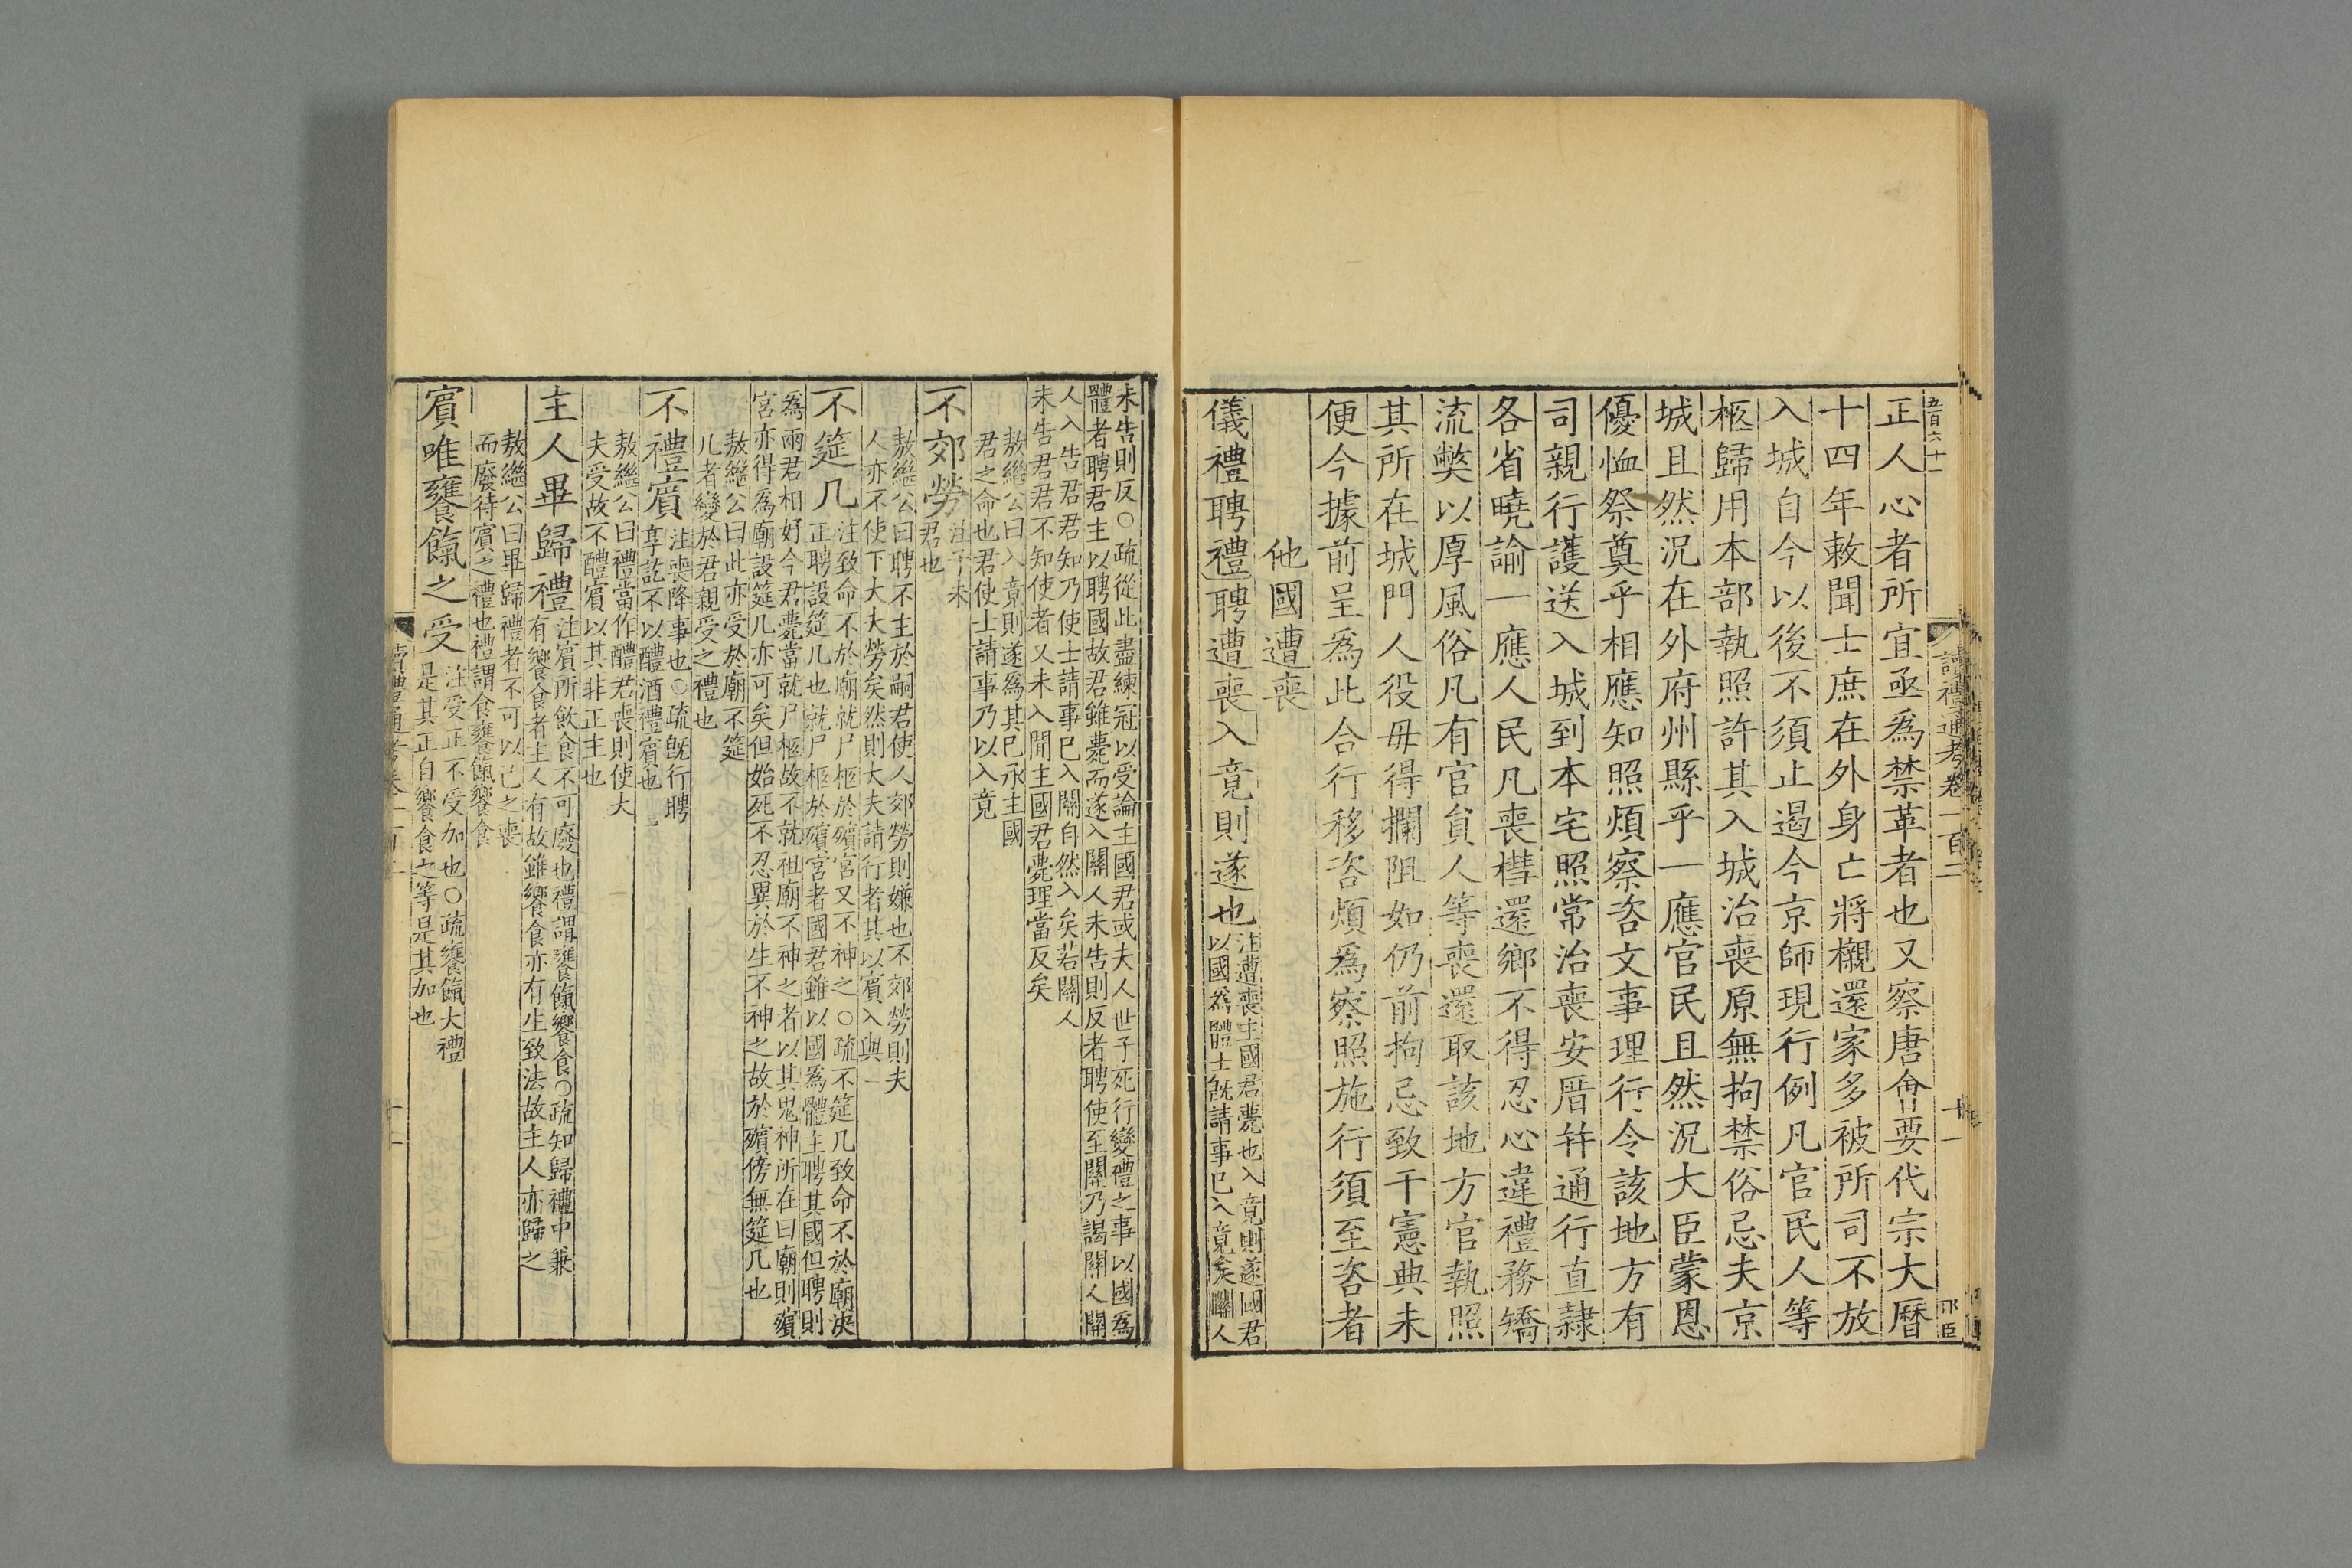 五百六十一
讀禮通考卷一百二
十一
邛臣
正人心者所宜亟爲禁革者也又察唐會要代宗大曆
十四年敕聞士庶在外身亡將櫬還家多被所司不放
入城自今以後不須止遏今京師現行例凡官民人等
柩歸用本部執照許其入城治喪原無拘禁俗忌夫京
城且然況在外府州縣乎一應官民且然況大臣蒙恩
優恤祭奠乎相應知照煩察咨文事理行令該地方有
司親行護送入城到本宅照常治喪安厝幷通行直隷
各省曉諭一應人民凡喪槥還鄉不得忍心違禮務矯
流獘以厚風俗凡有官貟人等喪還取該地方官執照
其所在城門人役毋得攔阻如仍前拘忌致干憲典未
便今據前呈爲此合行移咨煩爲察照施行須至咨者
他國遭喪
儀禮聘禮聘遭喪入竟則遂也
注遭喪主國君薨也入竟則遂國君
以國爲體士旣請事已入竟矣關人
未告則反○疏從此盡練冠以受論主國君或夫人世子死行變禮之事以國爲
體者聘君主以聘國故君雖薨而遂入關人未告則反者聘使至關乃謁關人關
人入告君君知乃使士請事已入關自然入矣若關人
未告君君不知使者又未入聞主國君薨理當反矣
敖繼公曰入竟則遂爲其已承主國
君之命也君使士請事乃以入竟
不郊勞
注子未
君也
敖繼公曰聘不主於嗣君使人郊勞則嫌也不郊勞則夫
人亦不使下大夫勞矣然則大夫請行者其以賓入與
不筵几
注致命不於廟就尸柩於殯宮又不神之○疏不筵几致命不於廟決
正聘設筵几也就尸柩於殯宮者國君雖以國爲體主聘其國但聘則
爲兩君相好今君薨當就尸柩故不就祖廟不神之者以其鬼神所在曰廟則殯
宮亦得爲廟設筵几亦可矣但始死不忍異於生不神之故於殯傍無筵几也
敖繼公曰此亦受於廟不筵
几者變於君親受之禮也
不禮賓
注喪降事也○疏旣行聘
享訖不以醴酒禮賓也
敖繼公曰禮當作醴君喪則使大
夫受故不醴賓以其非正主也
主人畢歸禮
注賓所飮食不可廢也禮謂饔餼饗食○疏知歸禮中兼
有饗食者主人有故雖饗食亦有生致法故主人亦歸之
敖繼公曰畢歸禮者不可以己之喪
而廢待賓之禮也禮謂食饔餼饗食
賓唯饔餼之受
注受正不受加也○疏饔餼大禮
是其正自饗食之等是其加也
讀禮通考卷一百二
十二